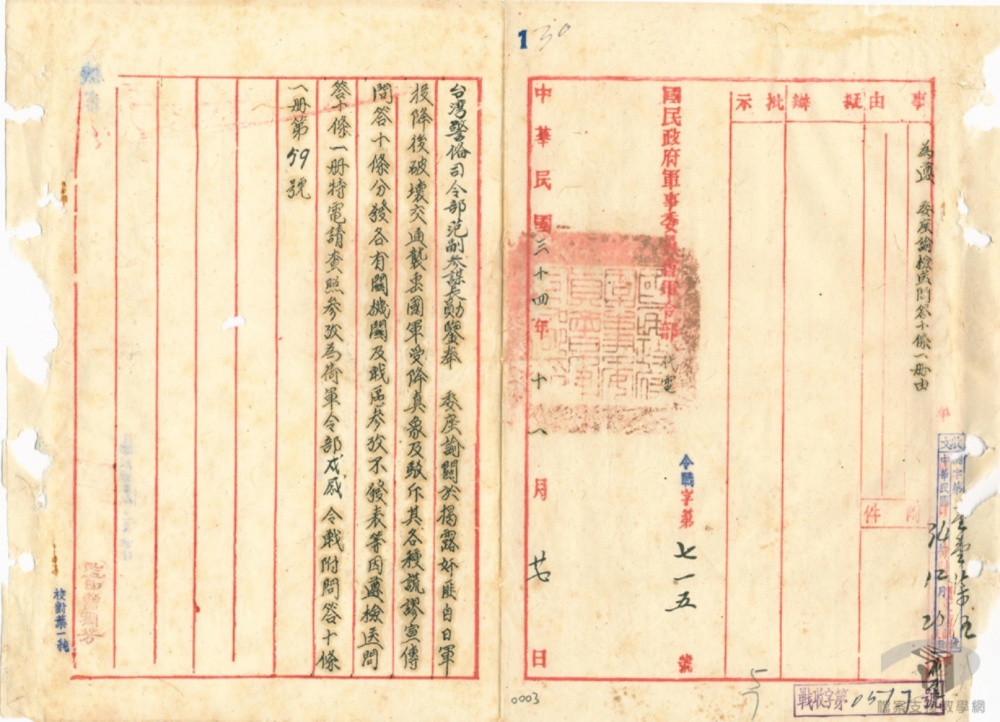 1 30
事由
擬辦
批示
為遵 委座諭檢送問答十條一册由
附件
國民政府軍事委員會軍令部代電
令戰字第七一五號
中華民國三十四年十一月廿日
台灣警備司令部范副參謀長勛鑒奉 委座諭關於揭露奸匪自日軍
投降後破壞交通襲擊國軍受降真象及駁斥其各種謊謬宣傳
問答十條分發各有關機關及戰區參攷不發表等因遵檢送問
答十條一册特電請查照參攷為荷軍令部戌 令戰附問答十條
一册第59號
校對葉一純
戰收字第0517號
0003